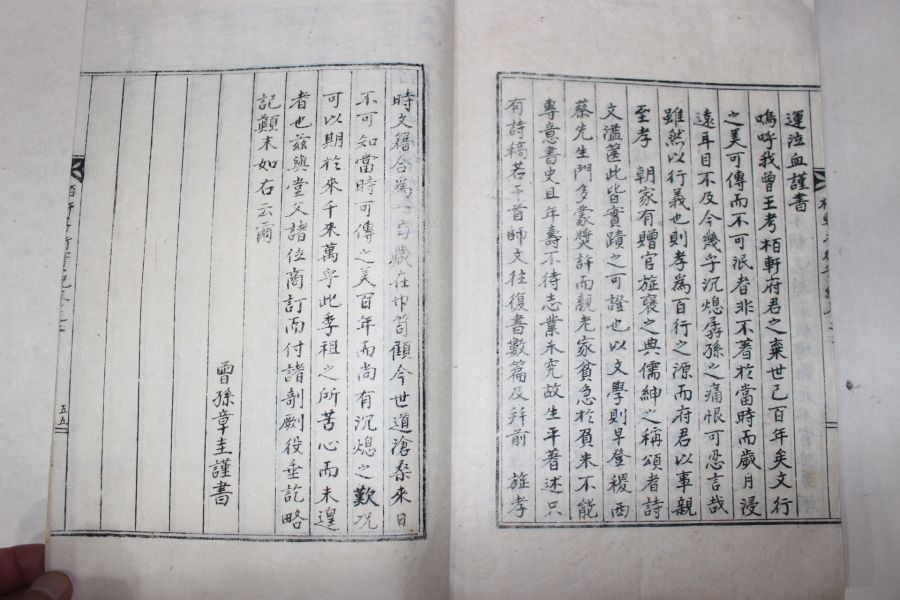 運泣血謹書
嗚呼我曾王考栢軒府君之棄世已百年矣文行
之美可傳而不可泯者非不著於當時而歲月浸
遠耳目不及今幾乎沉熄孱孫之痛恨可忍言哉
雖然以行義也則孝爲百行之源而府君以事親
至孝 朝家有贈官旌褒之典儒紳之稱頌者詩
文溢篋此皆實蹟之可證也以文學則早登稷西
蔡先生門多蒙獎許而親老家貧急於負米不能
專意書史且年壽不待志業未究故生平著述只
有詩稿若干首師文往復書數篇及幷前 旌孝
時文籍合爲一 藏在巾笥顧今世道滄桑來日
不可知當時可傳之美百年而尚有沉熄之歎况
可以期於來千來萬乎此季祖之所苦心而未遑
者也玆與堂父諸位商訂而付諸剞劂役垂訖略
記顚末如右云爾
曾孫章圭謹書
五五